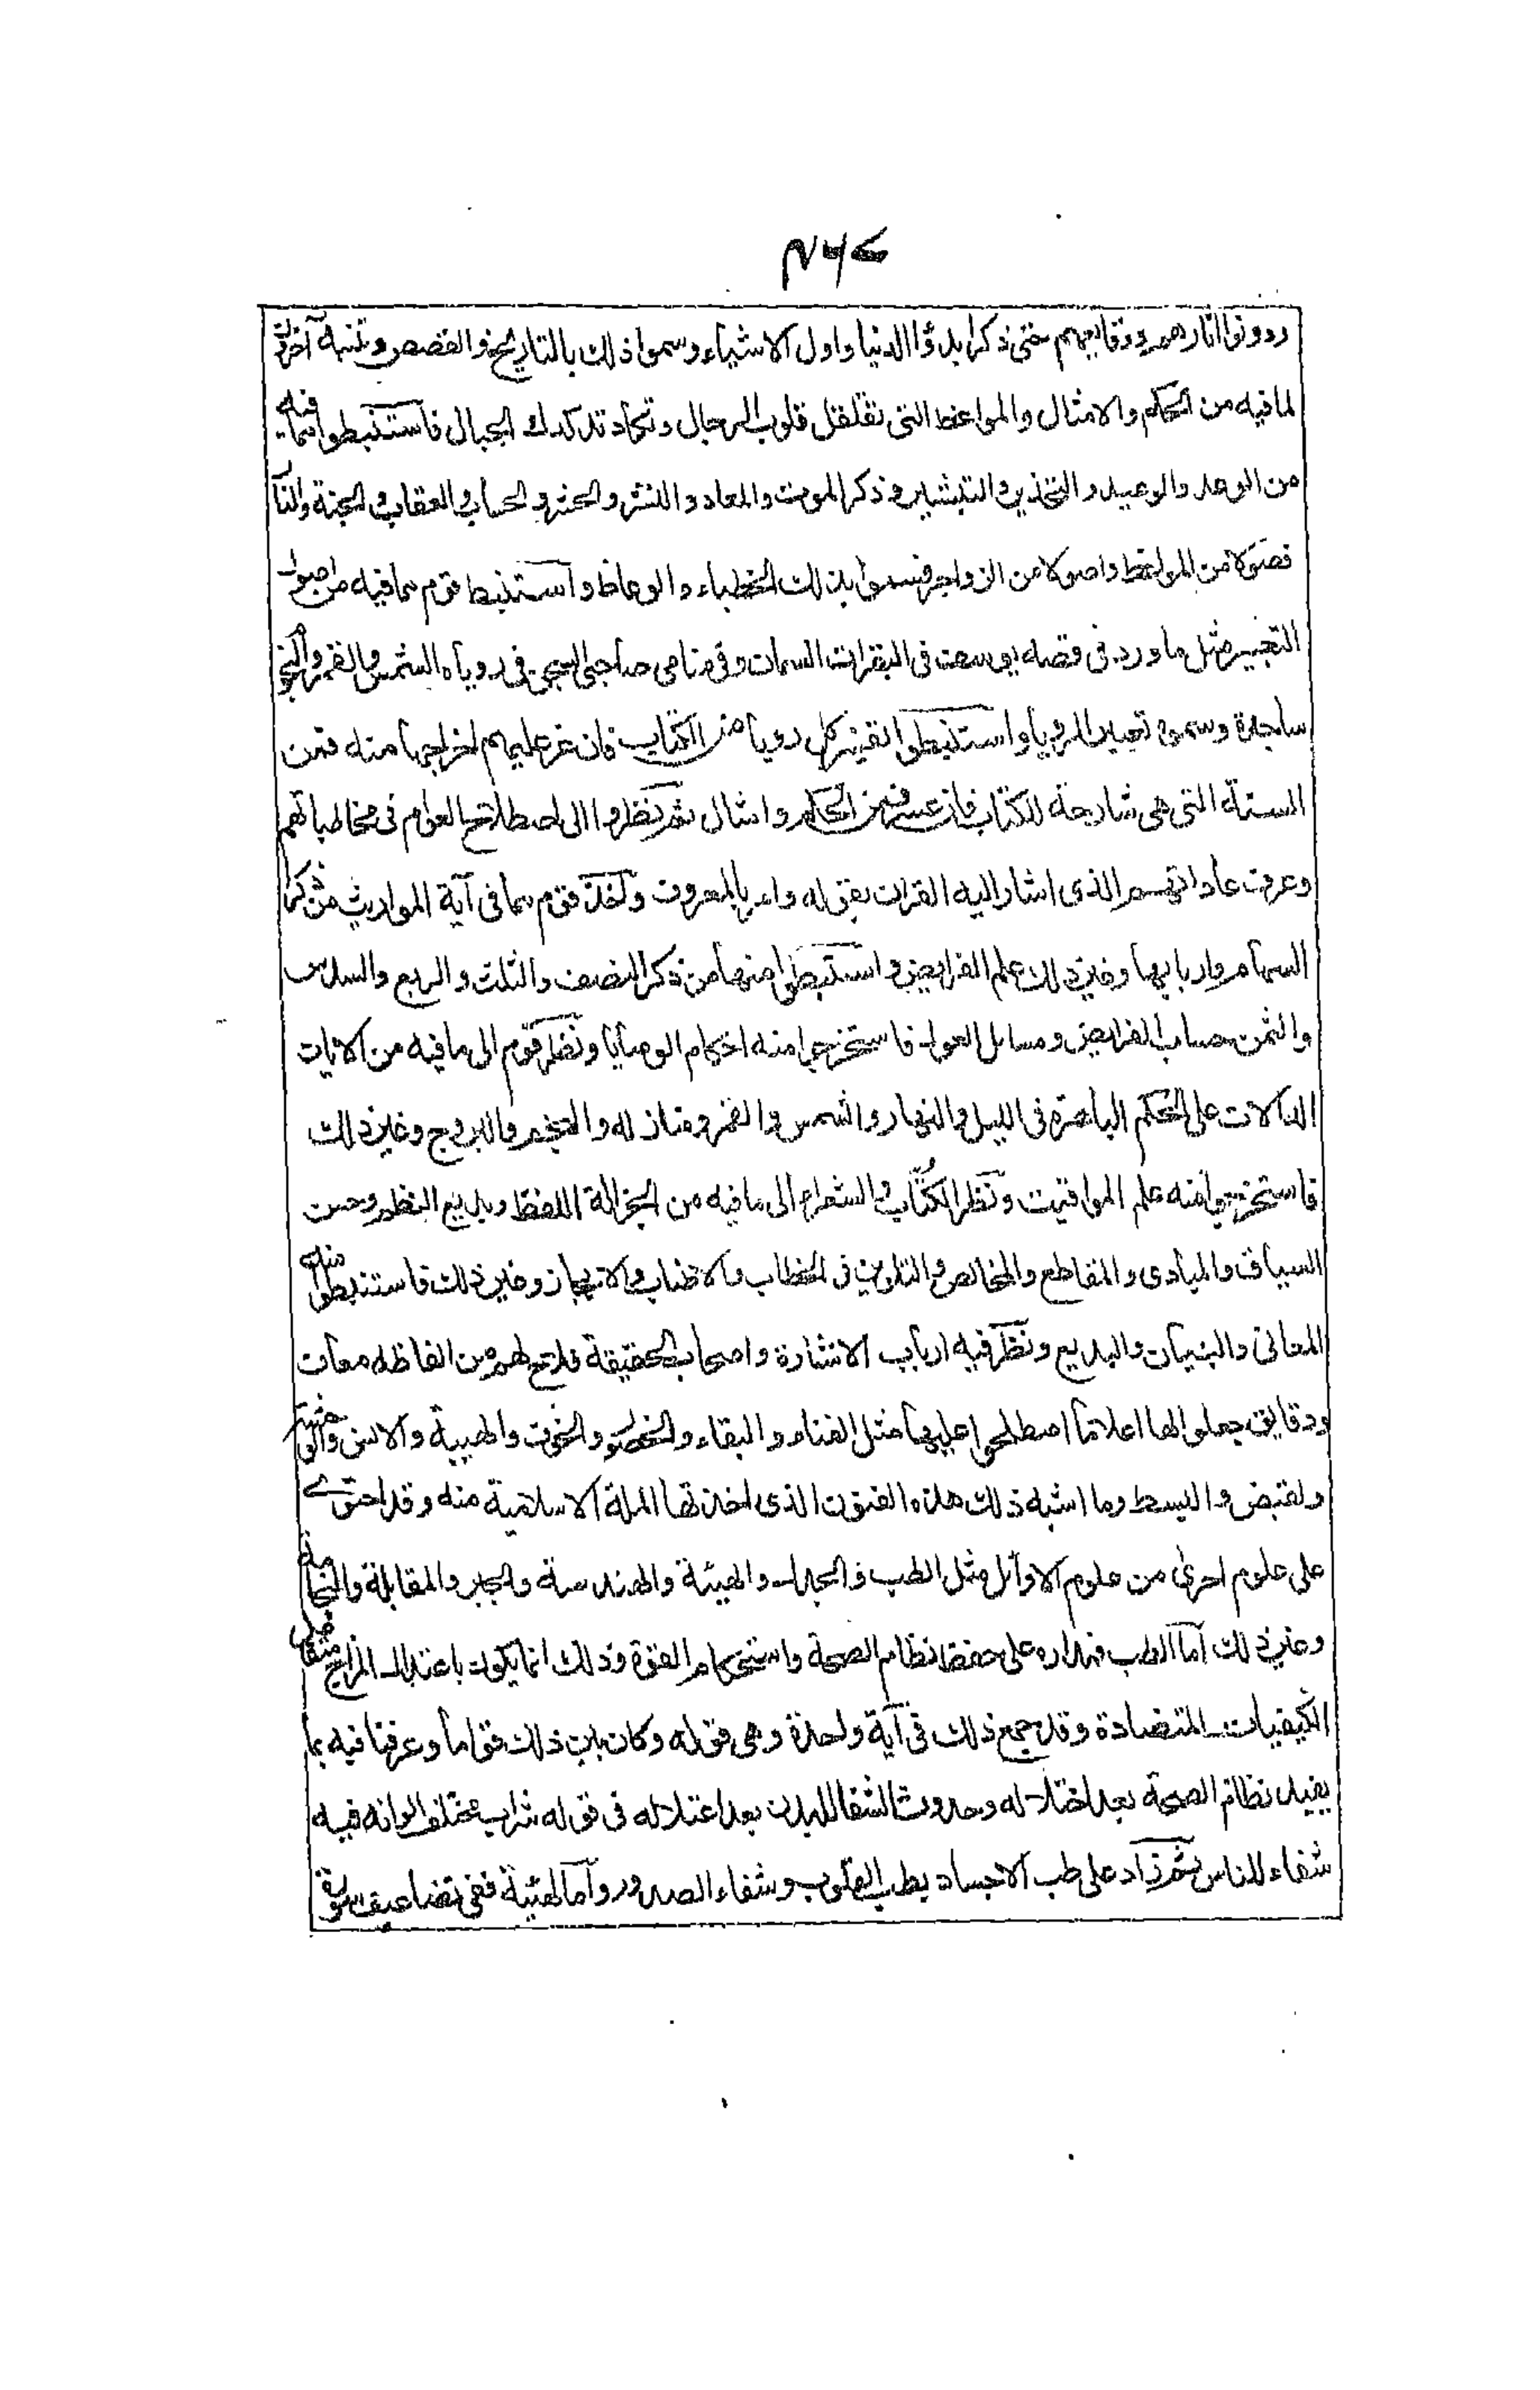 ودونوا اثارهم ووقايعهم حتى ذكرا بدؤا الدنيا واول الاشياء وسموا ذلك بالتاريخ والقصص وتنبه آخرون
لما فيه من الحكم والامثال والمواعظ التى تقلقل قلوب الرجال وتكاد تدكدك الجبال فاستنبطوا مما فيه
من الوعد والوعيد والتحذير والتبشير وذكر الموت والمعاد والنشر والحشر والحساب والعقاب والجنة والنا
فصولا من المواعظ واصولا من الزواجر فسموا بذلك الخطباء والوعاظ واستنبط قوم مما فيه من اصول
التعبير مثل ما ورد فى قصه يوسف فى البقرات السمان وفى منامى صاحبى السجن فى روياه الشمس والقمر والنجوم
ساجدة وسموه تعبير الرويا واستنبطوا تفسير كل رويا من الكتاب فان عز عليهم اخراجها منه فمن
السنة التى هى شارحة للكتاب فان عسر فمن الحكم وامثال ثم نظروا الى اصطلاح العوام فى مخاطباتهم
وعرف عاداتهم الذى اشار اليه القران بقوله وامر بالمعروف وأخذ قوم مما فى آية المواريث من ذكر
السهام واربابها وغير ذلك علم الفرايض واستنبطوا منها من ذكر النصف والثلث والربع والسدس
والثمن حساب الفرايض ومسايل العول فاستخرجوا منه احكام الوصايا ونظر قوم الى ما فيه من الايات
الدالات على الحكم الباهرة فى الليل والنهار والشمس والقمر ومنازله والنجوم والبروج وغير ذلك
فاستخرجوا منه علم المواقيت ونظر الكُتّاب والشعراء الى ما فيه من الجزالة اللفظ وبديع النظم وحسن
السياق والمبادى والمقاطع والمخالص والتلوين فى الخطاب والاطناب والايجاز وغير ذلك فاستنبطوا منه
المعانى والبيان والبديع ونظر فيه ارباب الاشارة واصحاب الحقيقة فلاح لهم من الفاظه معان
ودقايق جعلوا لها اعلاما اصطلحوا عليها مثل الفناء والبقاء والحضور والخوف والهيبة والانس والوحشة
ولقبض والبسط وما اشبه ذلك هذه الفنون الذى اخذتها الملة الاسلامية منه وقد احتوى
على علوم اخرى من علوم الاوآئل مثل الطب والجدل والهيئة والهندسة والجبر والمقابلة والنجامة
وغير ذلك أما الطب فمداره على حفظ نظام الصحة واستحكام القوة وذلك انما يكون باعتدال المزاج بتفاعل
الكيفيات المتضادة وقد جمع ذلك فى آية واحدة وهى قوله وكان بين ذلك قواما وعرفنا فيه بما
يفيد نظام الصحة بعد اختلاله وحدوث الشفا للبدن بعد اعتلاله فى قوله شراب مختلف الوانه فيه
شفاء للناس ثم زاد على طب الاجساد بطب القلوب وشفاء الصدور وأما الهيئة ففى تضاعيف سورة